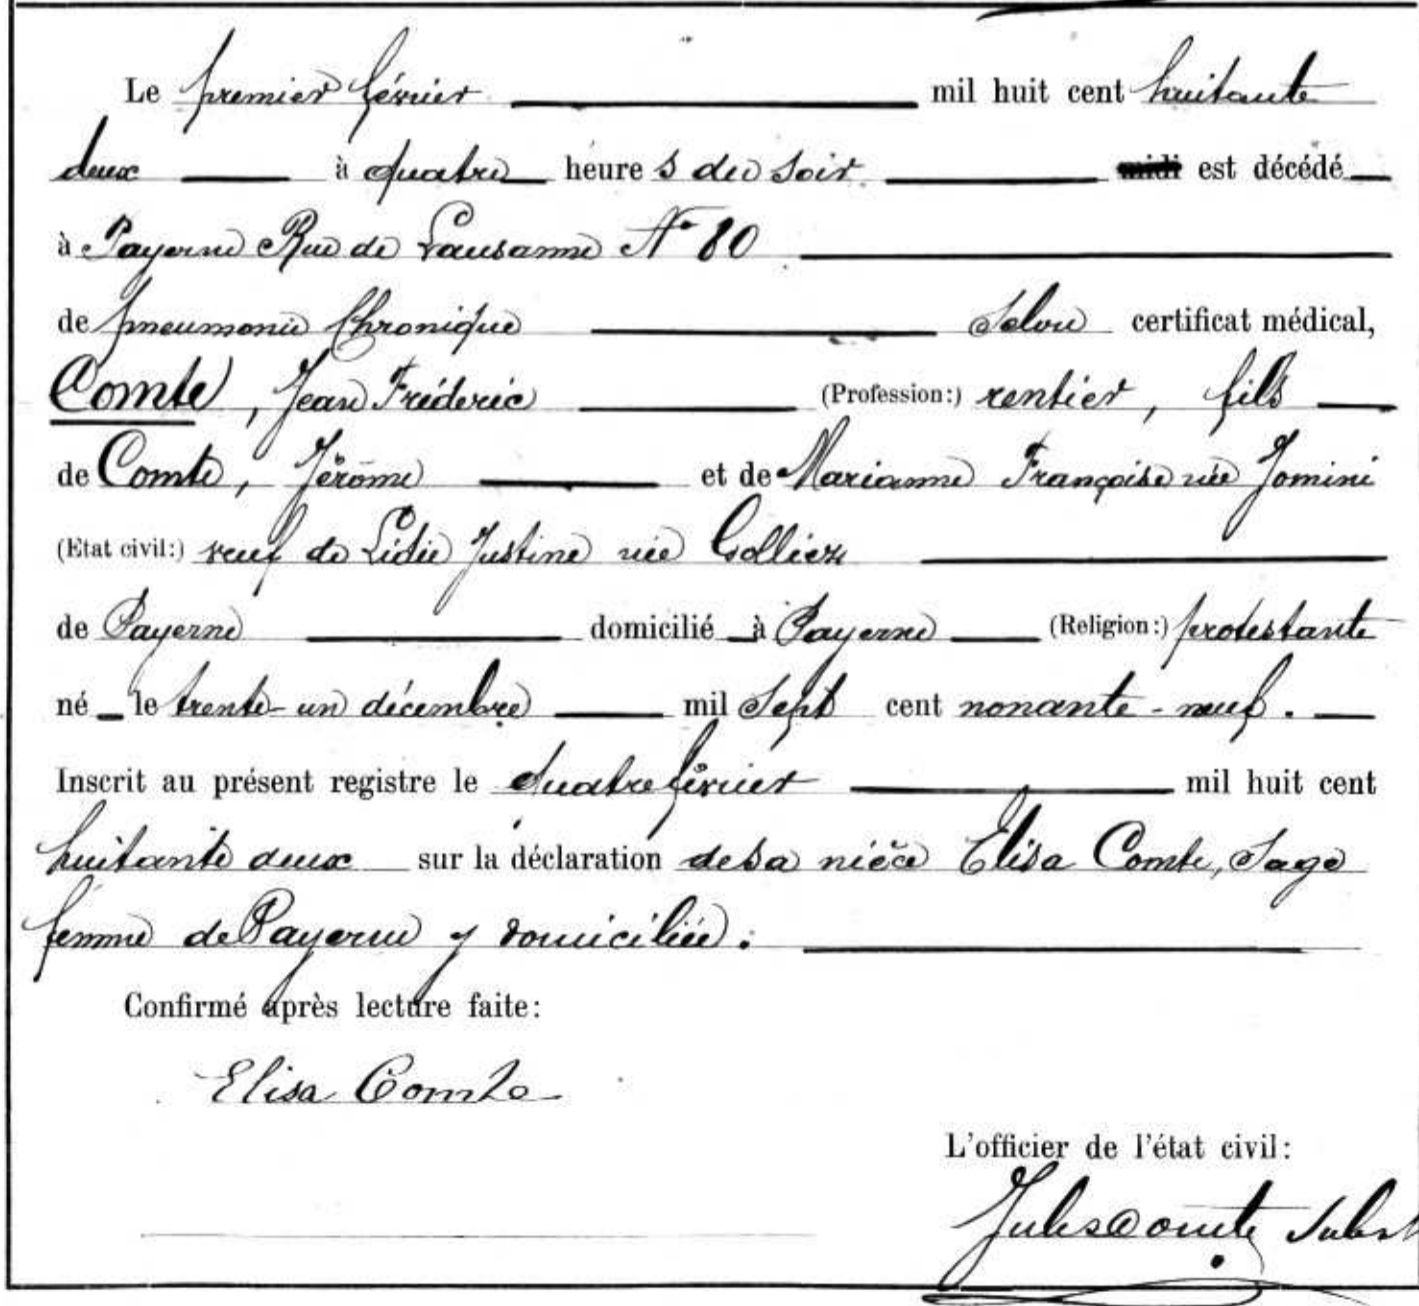 Le premier février mil huit cent huitante
deux à quatre heures du soir midi est décédé
à Payerne Rue de Lausanne N° 80
de pneumonie Chronique Selon certificat médical,
Comte, Jean Fréderic (Profession:) rentier, fils
de Comte, Jérôme et de Marianne Françoise née Jomini
(Etat civil:) veuf de Lidie Justine née Colliez
de Payerne domicilié à Payerne (Religion:) protestante
né le trente-un décembre mil Sept cent nonante-neuf.
Inscrit au présent registre le Quatre février mil huit cent
huitante deux sur la déclaration de sa nièce Elisa Comte, Sage
femme de Payerne y domiciliée.
Confirmé après lecture faite:
Elisa Comte
L'officier de l'état civil:
Jules Comte Subst